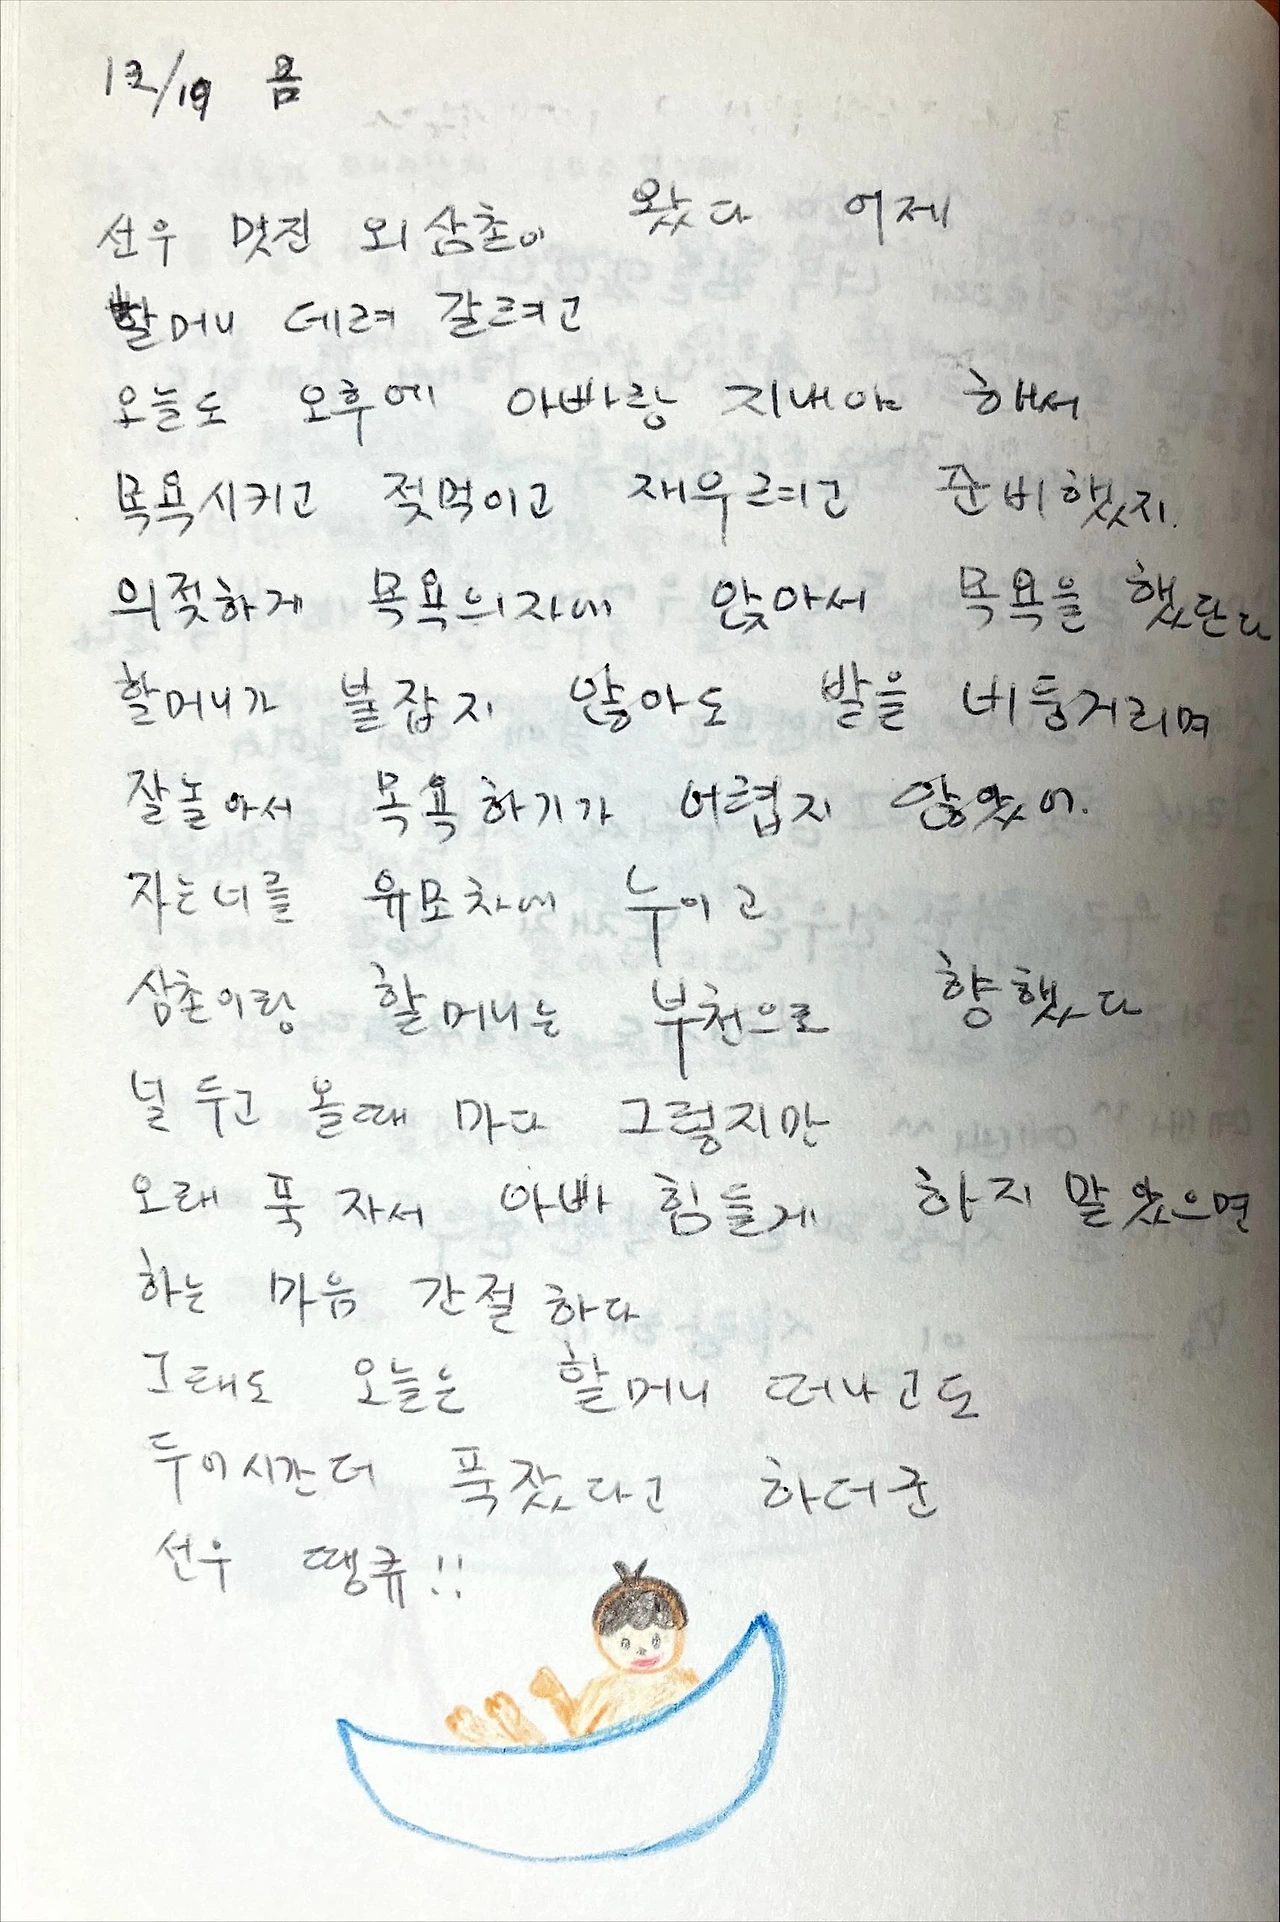 12/19 욤
선우 멋진 외삼촌이 왔다 어제
할머니 데려 갈려고
오늘도 오후에 아빠랑 지내야 해서
목욕시키고 젖먹이고 재우려고 준비했지.
의젓하게 목욕의자에 앉아서 목욕을 했단다
할머니가 붙잡지 않아도 발을 버둥거리며
잘놀아서 목욕하기가 어렵지 않았어.
자는너를 유모차에 누이고
삼촌이랑 할머니는 부천으로 향했다
널 두고 올때 마다 그렇지만
오래 푹 자서 아빠 힘들게 하지 말았으면
하는 마음 간절하다
그래도 오늘은 할머니 떠나고도
두어시간더 푹잤다고 하더군
선우 땡큐!!